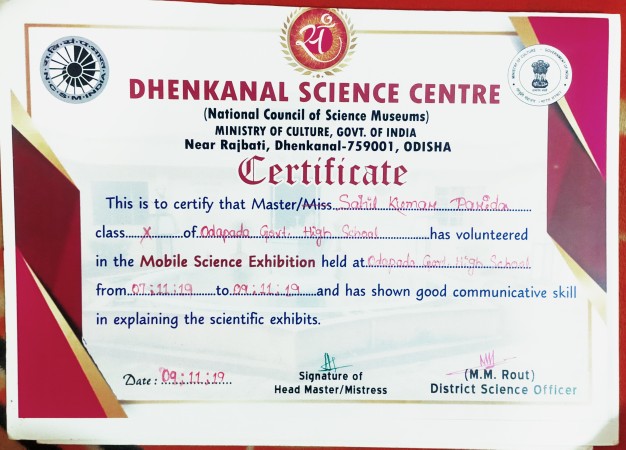 DHENKANAL SCIENCE CENTRE
(National Council of Science Museums)
MINISTRY OF CULTURE, GOVT. OF INDIA
Near Rajbati, Dhenkanal-759001, ODISHA
Certificate
This is to certify that Master/Miss Sahil Kumar Parida
class X of Odapada Govt. High School has volunteered
in the Mobile Science Exhibition held at Odapada Govt. High School
from 07.11.19 to 09.11.19 and has shown good communicative skill
in explaining the scientific exhibits.
Date: 09.11.19
Signature of
Head Master/Mistress
(M.M. Rout)
District Science Officer